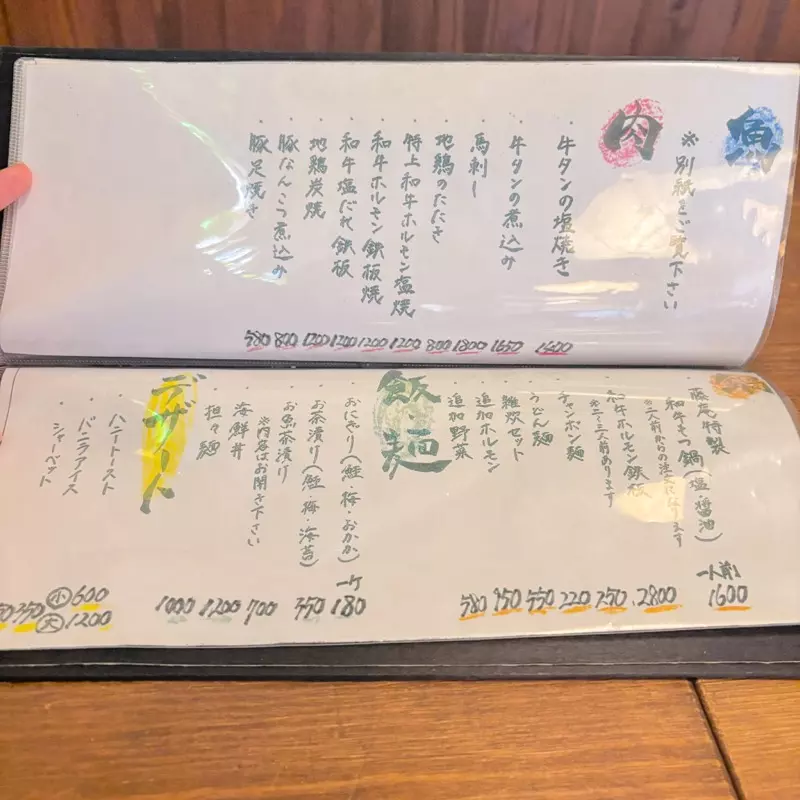 魚
※別紙をご覧下さい
肉
・牛タンの塩焼き 1600
・牛タンの煮込み 1650
・馬刺し 1800
・地鶏のたたき 800
・特上和牛ホルモン塩焼 1200
・和牛ホルモン鉄板焼 1200
・和牛塩だれ鉄板 1200
・地鶏炭焼 1200
・豚なんこつ煮込み 800
・豚足焼き 580
・藤庵特製
和牛もつ鍋(塩・醤油) 一人前 1600
※二人前からの注文になります
牛ホルモン鉄板 2800
※二～三人前あります
・チャンポン麺 250
・うどん麺 220
・雑炊セット 550
・追加ホルモン 950
・追加野菜 580
飯・麺
・おにぎり(鮭・梅・おかか) 一ケ 180
・お茶漬け(鮭・梅・海苔) 550
・お魚茶漬け 700
※内容はお聞き下さい
・海鮮丼 1200
・担々麺 1000
デザート
・ハニートースト 小 600 大 1200
・バニラアイス 350
・シャーベット